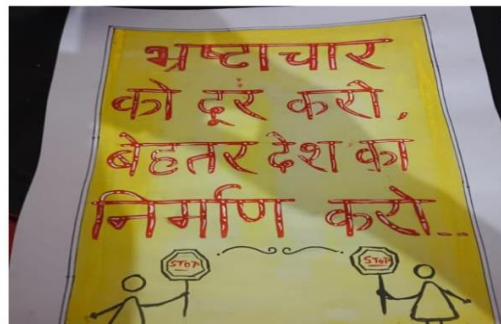 भ्रष्टाचार
को दूर करो,
बेहतर देश का
निर्माण करो...
STOP STOP